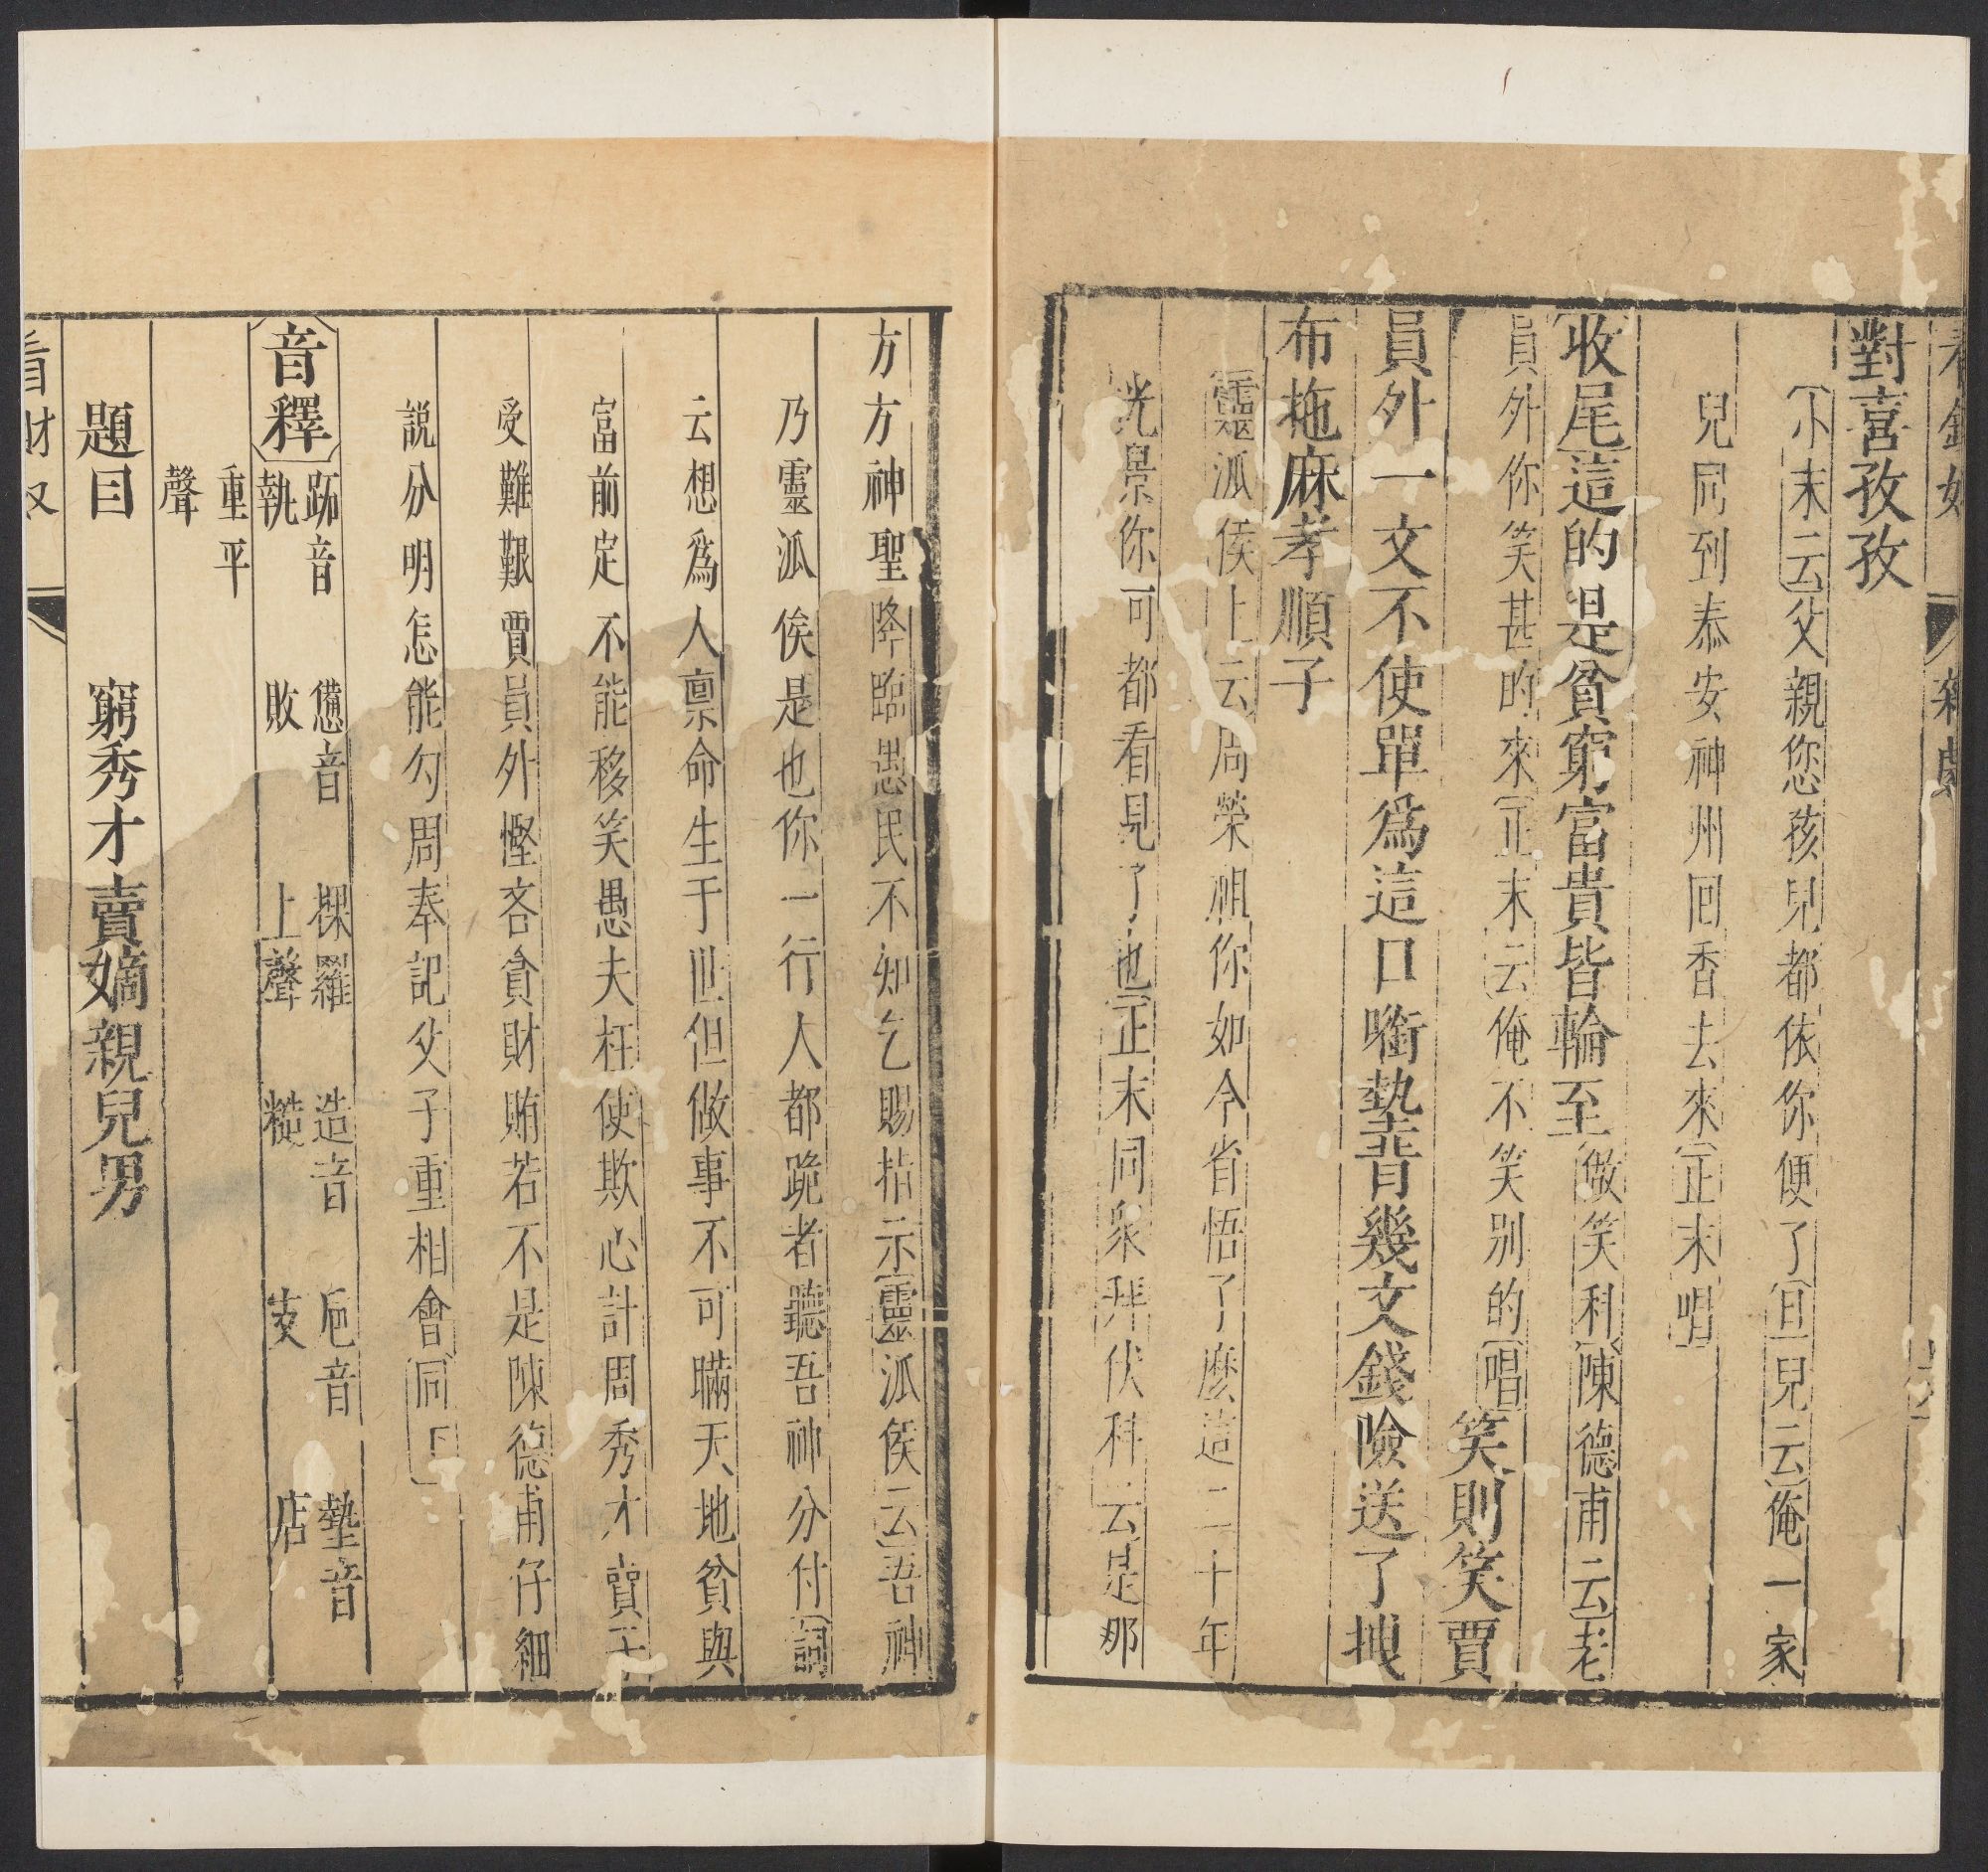 看錢奴 雜劇
對喜孜孜
〔小末云〕父親您孩兒都依你便了〔旦兒云〕俺一家
兒同到泰安神州回香去來〔正末唱〕
〔收尾〕這的是貧窮富貴皆輪至〔做笑科〕〔陳德甫云〕老
員外你笑甚的來〔正末云〕俺不笑别的〔唱〕笑則笑賈
員外一文不使單為這口啣墊背幾文錢險送了拽
布拖麻孝順子
〔靈泒侯上云〕周榮祖你如今省悟了麽這二十年
光景你可都看見了也〔正末同衆拜伏科云〕是那
方方神聖降臨愚民不知乞賜指示〔靈泒侯云〕吾神
乃靈泒侯是也你一行人都跪者聽吾神分付〔詞
云〕想爲人禀命生于世但做事不可瞞天地貧與
富前定不能移笑愚夫枉使欺心計周秀才賣子
受難艱賈員外慳吝貪財賄若不是陳德甫仔細
說分明怎能勾周奉記父子重相會〔同下〕
〔音釋〕 跖音執 憊音敗 稞羅上聲 造音糙 卮音支 墊音店
重平聲
題目 窮秀才賣嫡親兒男